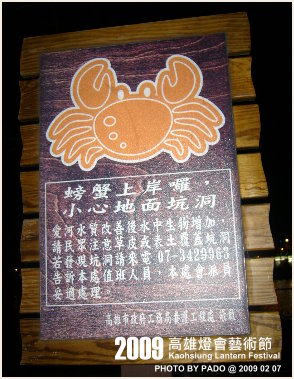 螃蟹上岸囉，
小心地面坑洞
愛河水質改善後水中生物增加，
請民眾注意草皮或表土覆蓋坑洞
若發現坑洞請來電 07-3429963
告訴本處值班人員，本處會派員
妥適處理。
高雄市政府工務局養護工程處 啟
2009 高雄燈會藝術節
Kaohsiung Lantern Festival
PHOTO BY PADO @ 2009 02 07